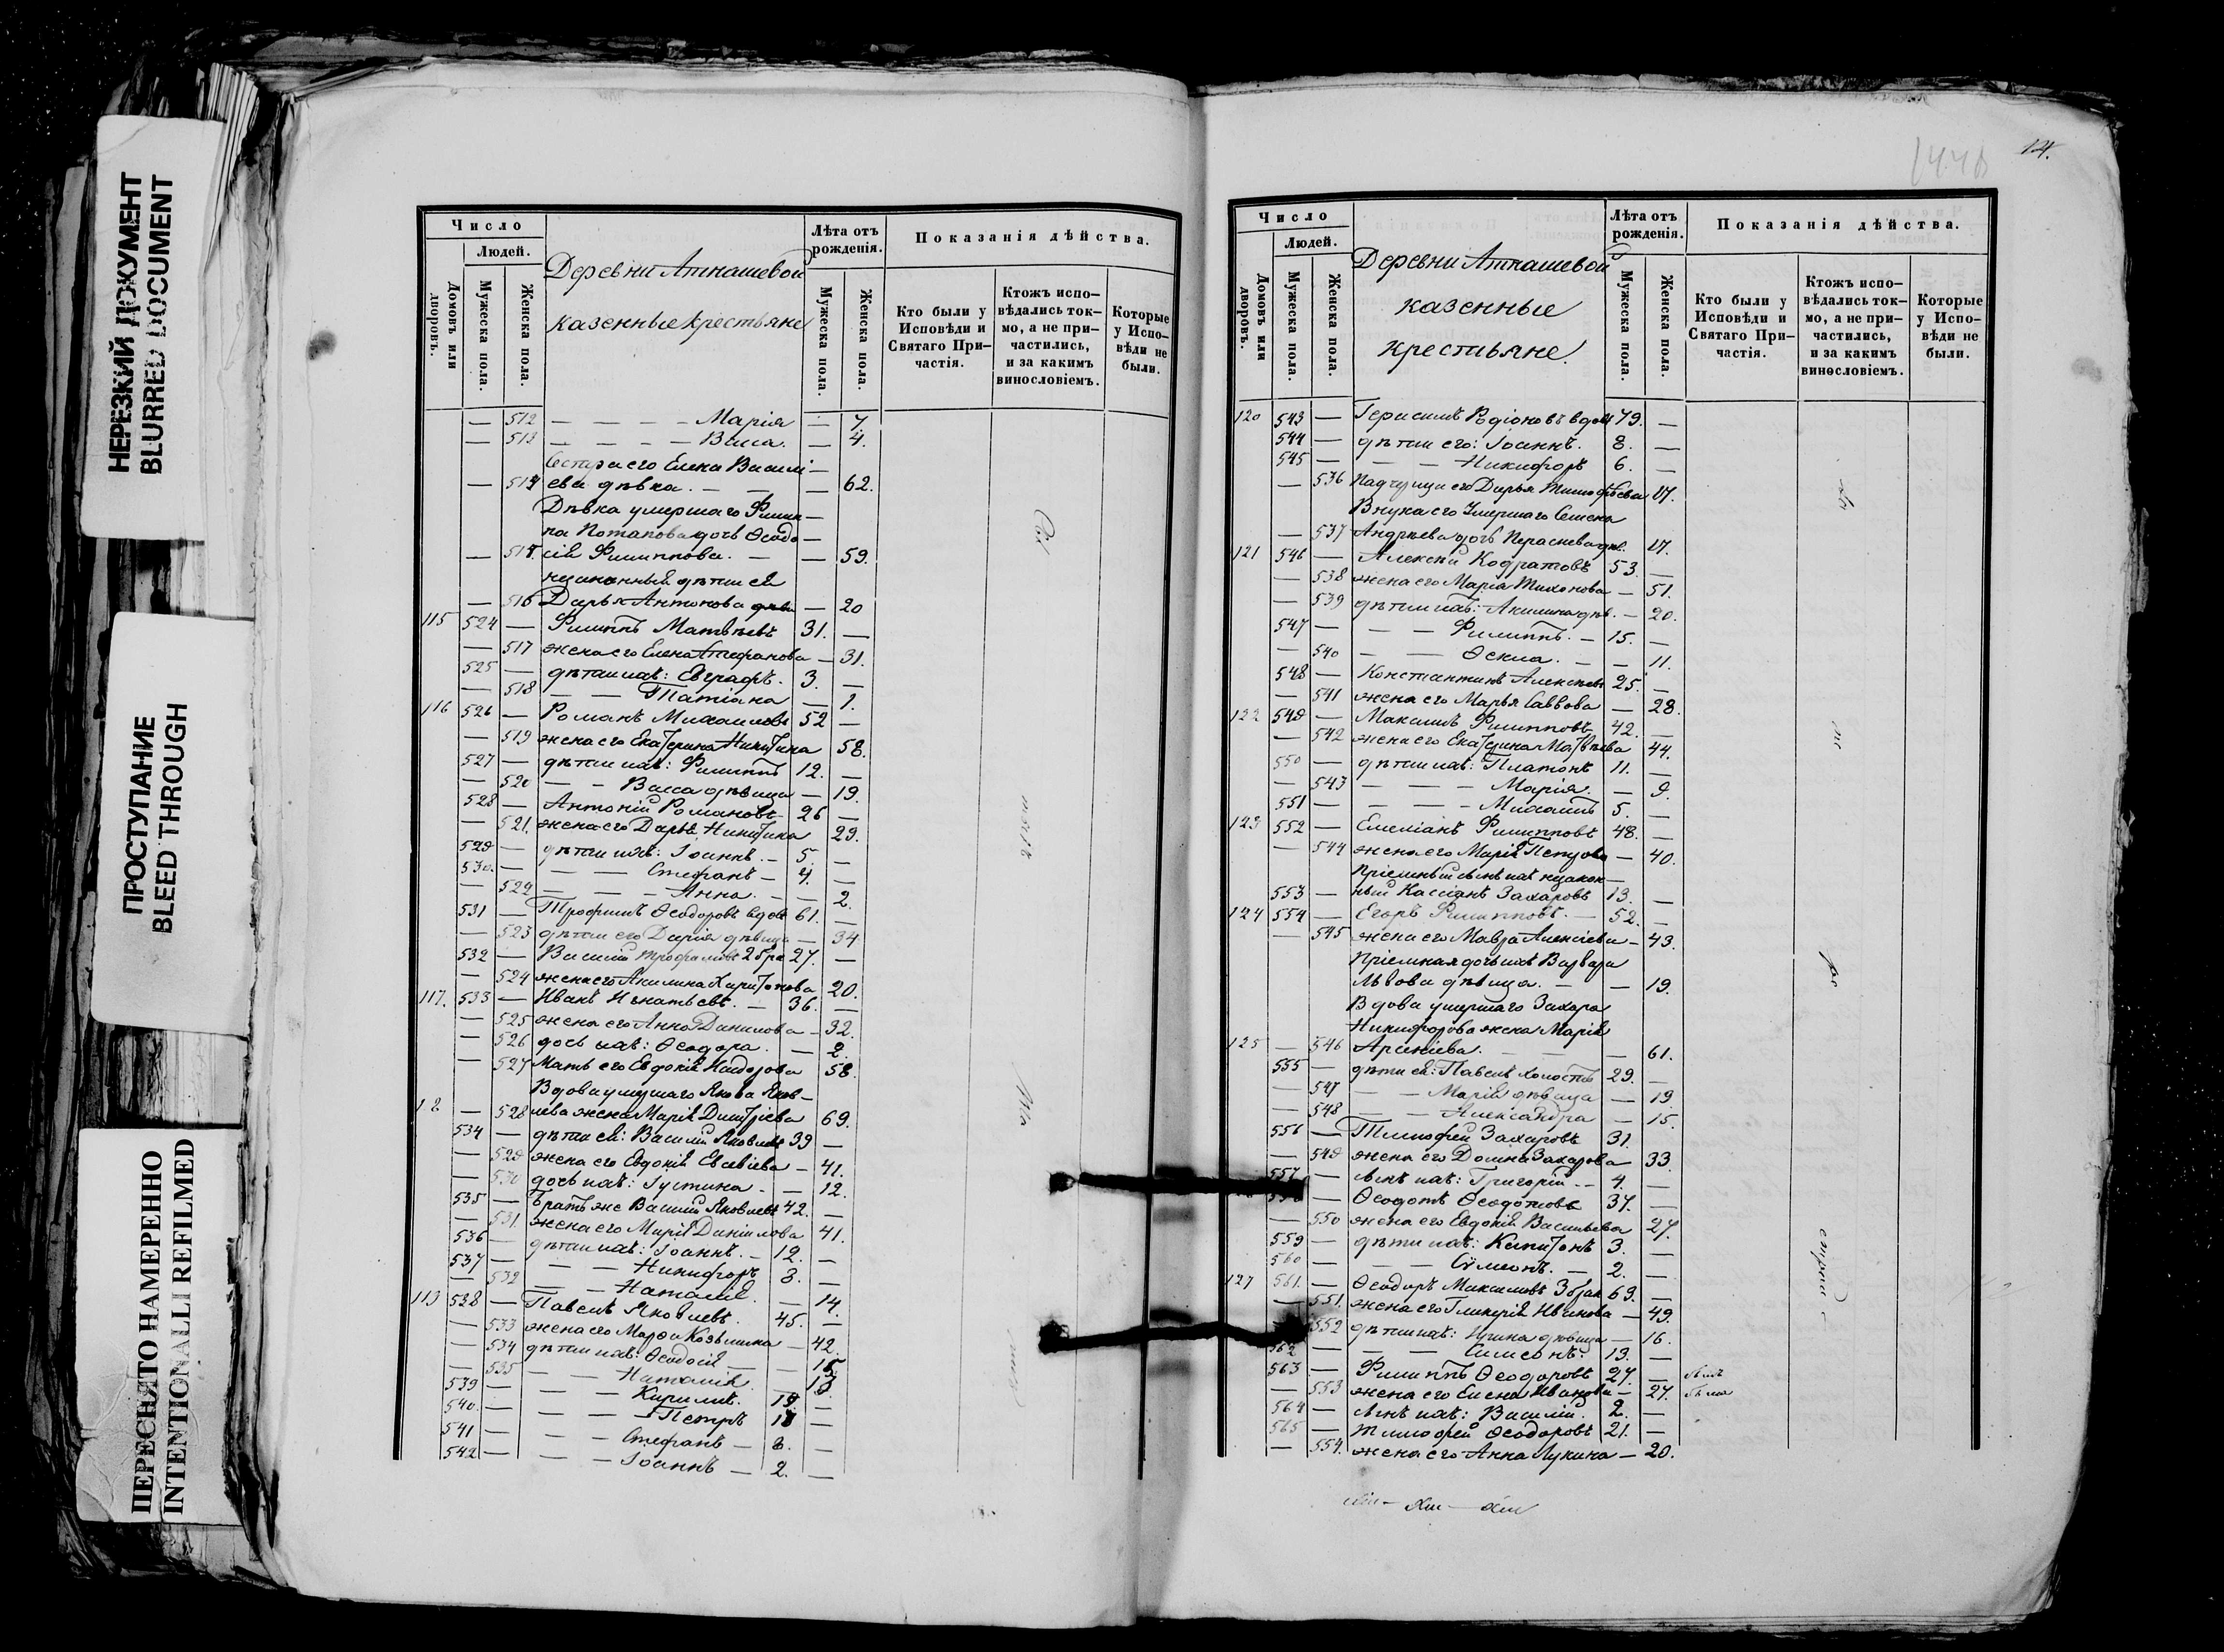 НЕРЕЗКИЙ ДОКУМЕНТ
BLURRED DOCUMENT
ПРОСТУПАНИЕ
BLEED THROUGH
ПЕРЕСНЯТО НАМЕРЕННО
INTENTIONALLI REFILMED
Число
Людей.
Домовъ или дворовъ.
Мужеска пола.
Женска пола.
Деревни Аткашевой
казенные крестьяне
Лѣта отъ рожденія.
Мужеска пола.
Женска пола.
Показанія дѣйства.
Кто были у Исповѣди и Святаго Причастія.
Ктожъ исповѣдались токмо, а не причастились, и за какимъ винословіемъ.
Которые у Исповѣди не были.
— 512 — — — — Марія — 7
— 513 — — — — Васса. — 4.
Сестра его Елена Василі—
— 514 ева дѣвка. — — — 62.
Дѣвка умершаго Филип—
па Потапова дочь Ѳеодо—
— 515. сія Филиппова. — — 59.
незаконныя дѣти ея
— 516 Дарья Антонова дѣв — 20
115 524 — Филиппъ Матвѣевъ 31. —
— 517 жена его Елена Стефанова — 31.
525 — дѣти ихъ: Евграфъ. 3. —
— 518 — — Татіана — 1.
116 526 — Романъ Михаиловъ 52 —
— 519 жена его Екатерина Никитина 58.
527 — дѣти ихъ: Филиппъ 12. —
— 520 — — Васса дѣвица — 19.
528 — Антоній Романовъ 26 —
— 521. жена его Дарья Никитина 29.
529 — дѣти ихъ: Іоаннъ. — 5. —
530. — — — Стефанъ — 4. —
— 522 — — — Анна. — — 2.
531 — Трофимъ Ѳеодоровъ вдов 61. —
— 523 дѣти его Дарія дѣвица — 34
532 — Василій Трофимовъ 2 бра 27. —
— 524 жена его Акилина Харитонова 20.
117. 533 — Иванъ Игнатьевъ. — 36. —
— 525 жена его Анна Данилова — 32.
— 526 дочь ихъ: Ѳеодора. — 2.
— 527 Мать его Евдокія 58.
Вдова умершаго Якова Яков—
— 528 лева жена Марія Димитріева 69.
534 — дѣти ея: Василій Яковлевъ 39 —
— 529 жена его Евдокія Евсевіева — 41.
— 530 дочь ихъ: Іустина — — 12.
535 — Братъ же Василій Яковлевъ 42. —
— 531. жена его Марія Даниилова 41.
536 — дѣти ихъ: Іоаннъ. — 12. —
537 — — — Никифоръ 8. —
— 532 — — Наталія. — 14.
538 — Павелъ Яковлевъ. 45. —
— 533 жена его Марфа Козьмина — 42.
— 534 дѣти ихъ: Ѳеодосія — — 15
— 535 — — Наталія.
539 — — — Кириллъ. —
540. — — — Петръ —
541 — — — Стефанъ — 8. —
542 — — — Іоаннъ — 2. —
14.
Число
Людей.
Домовъ или дворовъ.
Мужеска пола.
Женска пола.
Деревни Аткашевой
казенные
крестьяне.
Лѣта отъ рожденія.
Мужеска пола.
Женска пола.
Показанія дѣйства.
Кто были у Исповѣди и Святаго Причастія.
Ктожъ исповѣдались токмо, а не причастились, и за какимъ винословіемъ.
Которые у Исповѣди не были.
120 543 — Герасимъ Родіоновъ вдов 79. —
544 — дѣти его: Іоаннъ. 8. —
545 — — — Никифоръ 6. —
— 536 Падчерица его Дарья Тимофѣева 17.
Внука его Умершаго Семена
— 537 Андреева дочь 17.
121 546 — Алексѣй Кодратовъ 53. —
— 538 жена его Марія Тихонова — 51.
— 539 дѣти ихъ: Акилина дѣв. — 20.
547 — — — Филиппъ. — 15. —
— 540 — — Ѳекла. — — 11.
548 — Константинъ Алексѣевъ 25. —
— 541 жена его Марья Саввова — 28.
122 549 — Максимъ Филипповъ 42. —
— 542 жена его Екатерина Матвѣева 44.
550 — дѣти ихъ: Платонъ 11. —
— 543 — — — Марія. — 9.
551 — — — Михаилъ 5. —
123 552 — Емеліанъ Филипповъ 48. —
— 544 жена его Марія Петрова — 40.
Пріемный сынъ ихъ незакон—
553 — ный Кассіанъ Захаровъ 13. —
124 554 — Егоръ Филипповъ. — 52. —
— 545 жена его Мавра Алексіева — 43.
Пріемная дочь ихъ Варвара
Львова дѣвица. — — 19.
Вдова умершаго Захара
Никифорова жена Марія
125 — 546 Арсеніева. — — — 61.
555 — дѣти ея: Павелъ холостъ 29. —
— 547 — — Марія дѣвица — 19
— 548 — — Александра — 15.
556 — Тимофей Захаровъ 31. —
— 549 жена его Домна Захарова — 33.
557 — сынъ ихъ: Григорій — 4. —
— Ѳеодотъ Ѳеодотовъ 37. —
— 550 жена его Евдокія Васильева 27.
559 — дѣти ихъ: Капитонъ 3. —
560 — — — Сѵмеонъ. — 2. —
127 561. — Ѳеодоръ Максимовъ 3 брак 69. —
— 551. жена его Гликерія Иванова — 49.
552 дѣти ихъ: Ирина дѣвица — 16.
562 — — — Симеонъ. 13. —
563 — Филиппъ Ѳеодоровъ 27. — былъ
— 553 жена его Елена Иванова — 27. была
564 — сынъ ихъ: Василій. 2. —
565 — Тимофей Ѳеодоровъ 21. —
— 554. жена его Анна Лукина — 20.